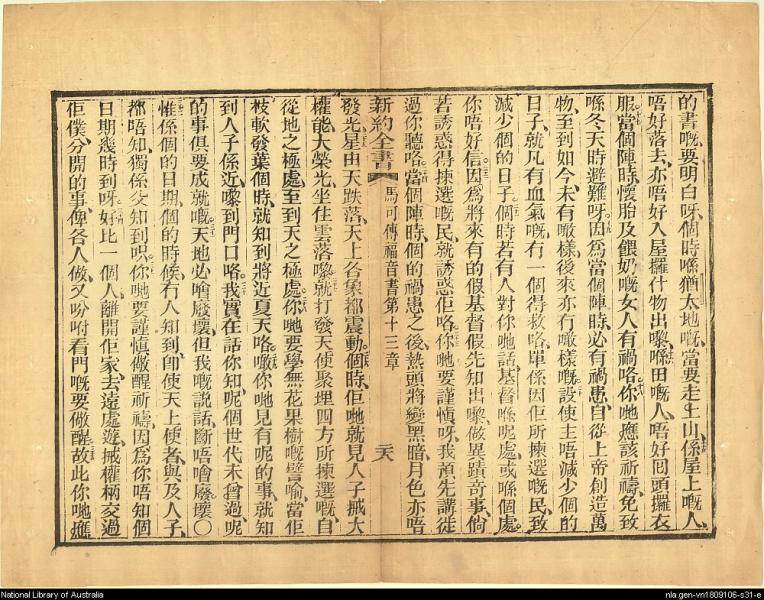 的書嘅、要明白呀、個時喺猶太地嘅、當要走上山、係屋上嘅人、
唔好落去、亦唔好入屋攞什物出嚟、喺田嘅人、唔好囘頭攞衣
服、當個陣時、懷胎及餵奶嘅女人有禍咯、你哋應該祈禱、免致
喺冬天時避難呀、因爲當個陣時、必有禍患、自從上帝創造萬
物、至到如今、未有噉樣、後來亦冇噉樣嘅、設使主唔減少個的
日子、就凡有血氣嘅冇一個得救咯、單係因佢所揀選嘅民、致
減少個的日子、個時若有人對你哋話、基督喺呢處、或喺個處、
你唔好信、因爲將來有的假基督、假先知出嚟、做異蹟奇事、倘
若誘惑得揀選嘅民、就誘惑佢咯、你哋要謹愼呀、我預先講從
過你聽咯、當個陣時、個的禍患之後、熱頭將變黑暗、月色亦唔
新約全書 馬可傳福音書第十三章 二六
發光、星由天跌落、天上各象都震動、個時佢哋就見人子、城大
權能大榮光、坐住雲落嚟、就打發天使聚埋四方所揀選嘅、自
從地之極處、至到天之極處、你哋要學無花果樹嘅譬喻、當佢
枝軟發葉個時、就知到將近夏天咯、噉你哋見有呢的事、就知
到人子係近、嚟到門口咯、我實在話你知、呢個世代未曾過、呢
的事俱要成就嘅、天地必噲廢壞、但我嘅說話、斷唔噲廢壞、〇
惟係個的日期、個的時候、冇人知到、卽使天上使者、與及人子、
都唔知、獨係父知到呮、你哋要謹愼儆醒祈禱、因爲你唔知個
日期幾時到呀、好比一個人、離開佢家、去遠處遊、城權柄交過
佢僕、分開的事、俾各人做、又吩咐看門嘅要儆醒、故此你哋應